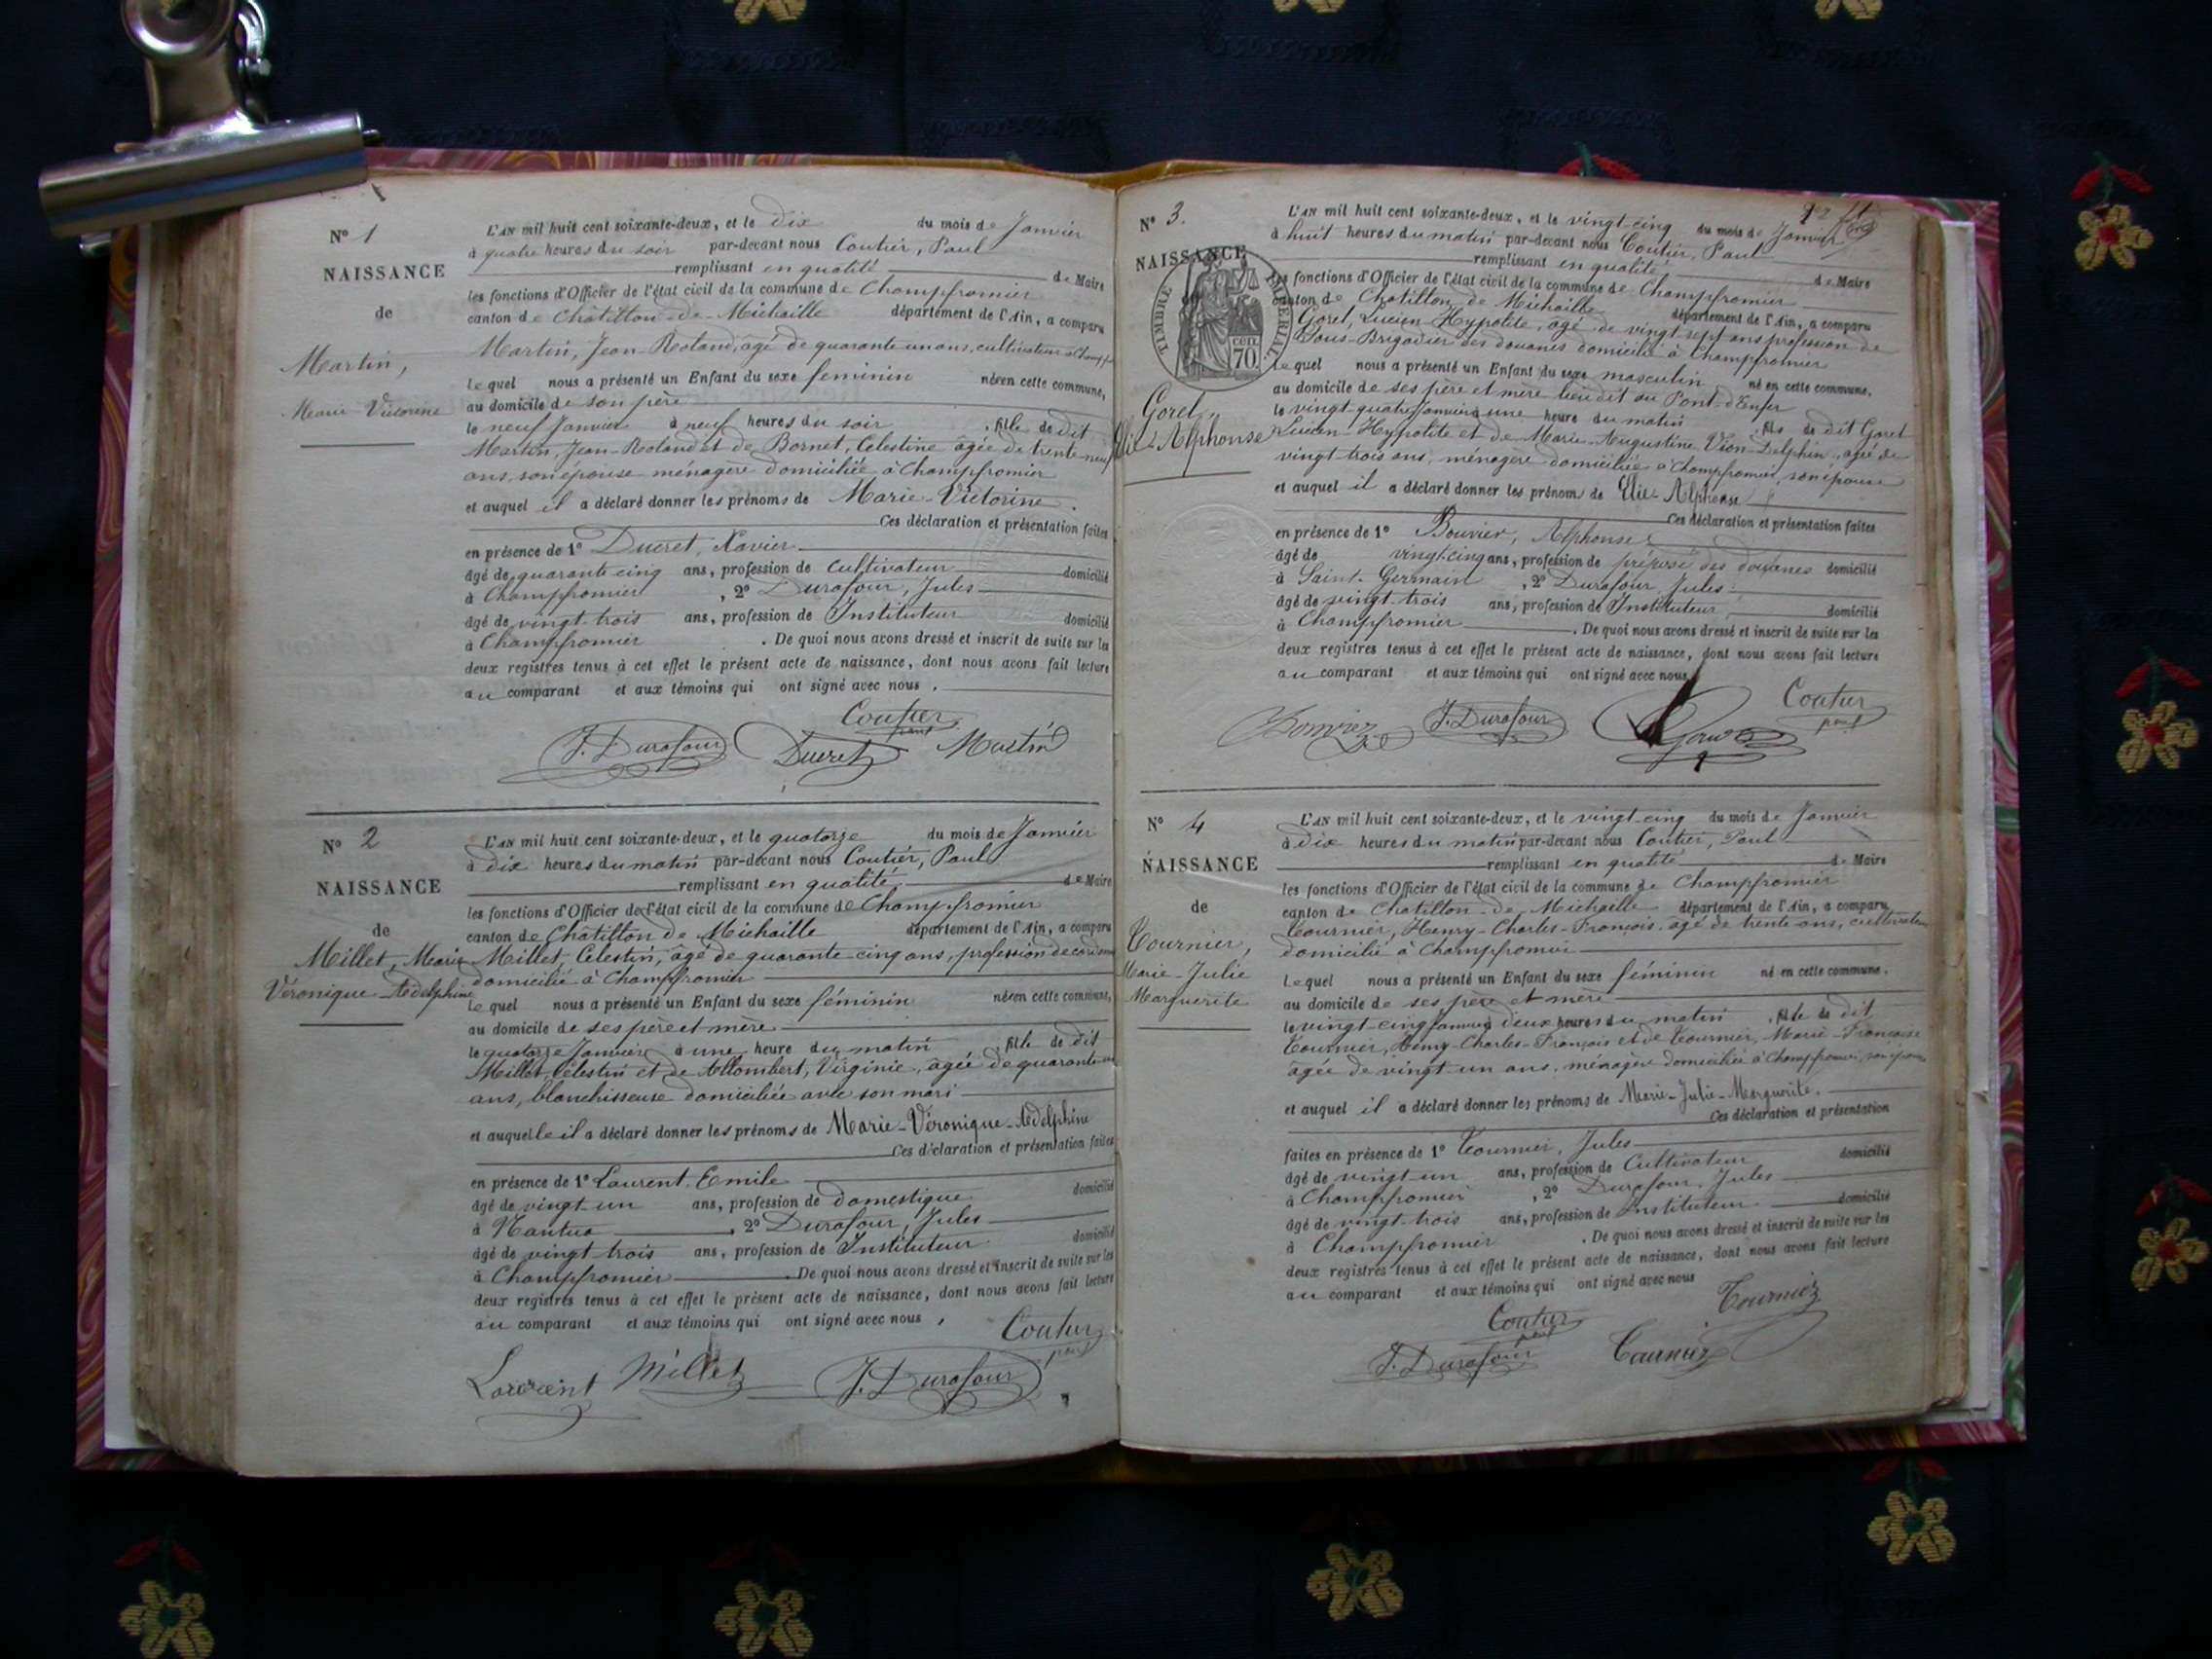 N° 1
NAISSANCE
de
Martin,
Marie Victorine
L'AN mil huit cent soixante-deux, et le dix du mois de Janvier
à quatre heures du soir par-devant nous Coutier, Paul
remplissant en qualité de Maire
les fonctions d'Officier de l'état civil de la commune de Champfromier
canton de Chatillon-de-Michaille département de l'Ain, a comparu
Martin, Jean-Roland, âgé de quarante un ans, cultivateur à
Lequel nous a présenté un Enfant du sexe feminin née en cette commune,
au domicile de son père
le neuf Janvier à neuf heures du soir, fille de dit
Martin, Jean-Roland et de Bornet, Celestine âgée de trente-neuf
ans, son épouse ménagère domiciliée à Champfromier
et auquel il a déclaré donner les prénoms de Marie-Victorine.
Ces déclaration et présentation faites
en présence de 1° Ducret, Xavier
âgé de quarante cinq ans, profession de cultivateur domicilié
à Champfromier, 2° Durafour, Jules
âgé de vingt-trois ans, profession de Instituteur domicilié
à Champfromier. De quoi nous avons dressé et inscrit de suite sur les
deux registres tenus à cet effet le présent acte de naissance, dont nous avons fait lecture
au comparant et aux témoins qui ont signé avec nous.
Coutier
J. Durafour Ducret Martin
N° 2
NAISSANCE
de
Millet, Marie
Véronique-Adelphine
L'AN mil huit cent soixante-deux, et le quatorze du mois de Janvier
à dix heures du matin par-devant nous Coutier, Paul
remplissant en qualité de Maire
les fonctions d'Officier de l'état civil de la commune de Champfromier
canton de Châtillon de Michaille département de l'Ain, a comparu
Millet, Célestin, âgé de quarante-cinq ans, profession de
domicilié à Champfromier
Lequel nous a présenté un Enfant du sexe féminin née en cette commune,
au domicile de ses père et mère
le quatorze Janvier à une heure du matin, fille de dit
Millet, Célestin et de Allombert, Virginie, âgée de quarante-un
ans, blanchisseuse domiciliée avec son mari
et auquelle il a déclaré donner les prénoms de Marie-Véronique-Adelphine
Ces déclaration et présentation faites
en présence de 1° Laurent, Emile
âgé de vingt-un ans, profession de domestique domicilié
à Nantua, 2° Durafour, Jules
âgé de vingt trois ans, profession de Instituteur domicilié
à Champfromier. De quoi nous avons dressé et inscrit de suite sur les
deux registres tenus à cet effet le présent acte de naissance, dont nous avons fait lecture
au comparant et aux témoins qui ont signé avec nous,
Coutier
Laurent Millet J. Durafour
N° 3.
NAISSANCE
TIMBRE IMPERIAL.
70 cen.
Goret,
Elie-Alphonse
L'AN mil huit cent soixante-deux, et le vingt-cinq du mois de Janvier
à huit heures du matin par-devant nous Coutier, Paul
remplissant en qualité de Maire
les fonctions d'Officier de l'état civil de la commune de Champfromier
canton de Chatillon de Michaille département de l'Ain, a comparu
Goret, Lucien-Hypolite, âgé de vingt-sept ans profession de
Sous-Brigadier des douanes domicilié à Champfromier
Lequel nous a présenté un Enfant du sexe masculin né en cette commune,
au domicile de ses père et mère lieu dit au Pont-d'Enfer
le vingt-quatre Janvier à une heure du matin, fils de dit Goret
Lucien-Hypolite et de Marie-Augustine Vion-Delphin, âgée de
vingt-trois ans, ménagère domiciliée à Champfromier, son épouse
et auquel il a déclaré donner les prénoms de Elie-Alphonse
Ces déclaration et présentation faites
en présence de 1° Bouvier, Alphonse
âgé de vingt-cinq ans, profession de préposé des douanes domicilié
à Saint-Germain, 2° Durafour, Jules
âgé de vingt-trois ans, profession de Instituteur domicilié
à Champfromier. De quoi nous avons dressé et inscrit de suite sur les
deux registres tenus à cet effet le présent acte de naissance, dont nous avons fait lecture
au comparant et aux témoins qui ont signé avec nous
Coutier
Bouvier J. Durafour
N° 4
NAISSANCE
de
Tournier,
Marie-Julie
Marguerite
L'AN mil huit cent soixante-deux, et le vingt-cinq du mois de Janvier
à dix heures du matin par-devant nous Coutier, Paul
remplissant en qualité de Maire
les fonctions d'Officier de l'état civil de la commune de Champfromier
canton de Chatillon-de-Michaille département de l'Ain, a comparu
Tournier, Henry-Charles-François, âgé de trente ans, cultivateur
domicilié à Champfromier
Lequel nous a présenté un Enfant du sexe féminin né en cette commune,
au domicile de ses père et mère
le vingt-cinq Janvier à deux heures du matin, fille de dit
Tournier, Henry-Charles-François et de Tournier, Marie-Françoise
âgée de vingt-un ans, ménagère domiciliée à Champfromier, son épouse
et auquel il a déclaré donner les prénoms de Marie-Julie-Marguerite.
Ces déclaration et présentation
faites en présence de 1° Tournier, Jules
âgé de vingt-un ans, profession de Cultivateur domicilié
à Champfromier, 2° Durafour, Jules
âgé de vingt-trois ans, profession de Instituteur domicilié
à Champfromier. De quoi nous avons dressé et inscrit de suite sur les
deux registres tenus à cet effet le présent acte de naissance, dont nous avons fait lecture
au comparant et aux témoins qui ont signé avec nous
Tournier
Coutier
J. Durafour Tournier